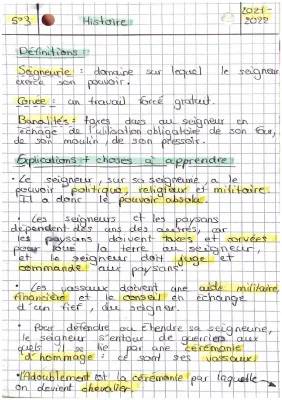 5°3
Histoire
2021-
2022
Définitions
Seigneurie : domaine sur lequel le seigneur
exerce son pouvoir.
Corvée : un travail forcé gratuit.
Banalités : taxes dues au seigneur en
échange de l'utilisation obligatoire de son four,
de son moulin, de son pressoir.
Explications + choses à apprendre
• Le seigneur, sur sa seigneurie, a le
pouvoir politique, religieux et militaire.
Il a donc le pouvoir absolu.
• Les seigneurs et les paysans
dépendent des uns des autres, car
les paysans doivent taxes et corvées
pour la terre au seigneur,
et le seigneur doit juge et
commande aux paysans.
• Les vassaux doivent une aide militaire,
financière et le conseil en échange
d'un fief, du seigneur.
• Pour défendre ou étendre sa seigneurie,
le seigneur s'entoure de guerriers aux
quels il se lie par une cérémonie
d'hommage : ce sont ses vassaux.
• L'Adoubement est la cérémonie par laquelle
on devient chevalier.